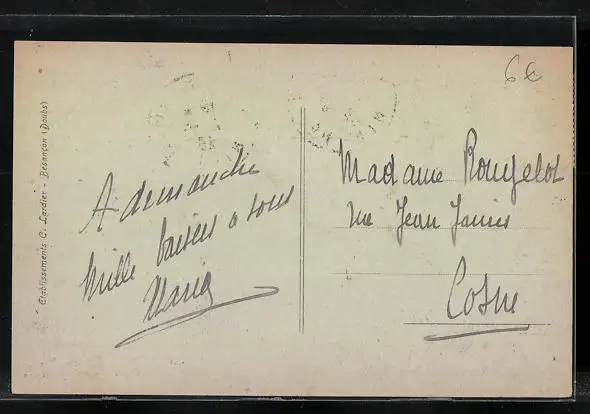 6€
Etablissements C. Lardier - Besançon (Doubs)
A demanche
Mille baisers a tous
Maria
Madame Rougelot
rue Jean Jaurès
Cosne